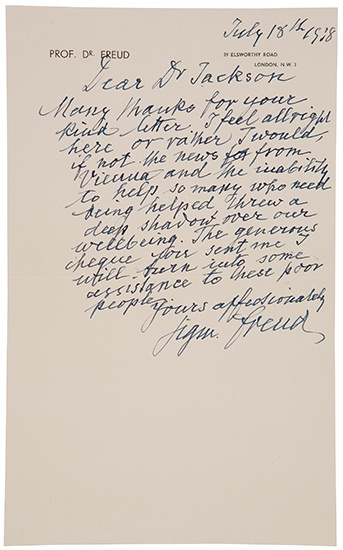 July 18th 1938
PROF. DR. FREUD
39 ELSWORTHY ROAD
LONDON, N.W. 3
Dear Dr Jackson
Many thanks for your
kind letter. I feel allright
here or rather I would,
if not the news from
Vienna and the inability
to help so many who need
being helped threw a
deep shadow over our
wellbeing. The generous
cheque you sent me I
will turn into some
assistance to these poor
people.
Yours affectionately
Sigm. Freud